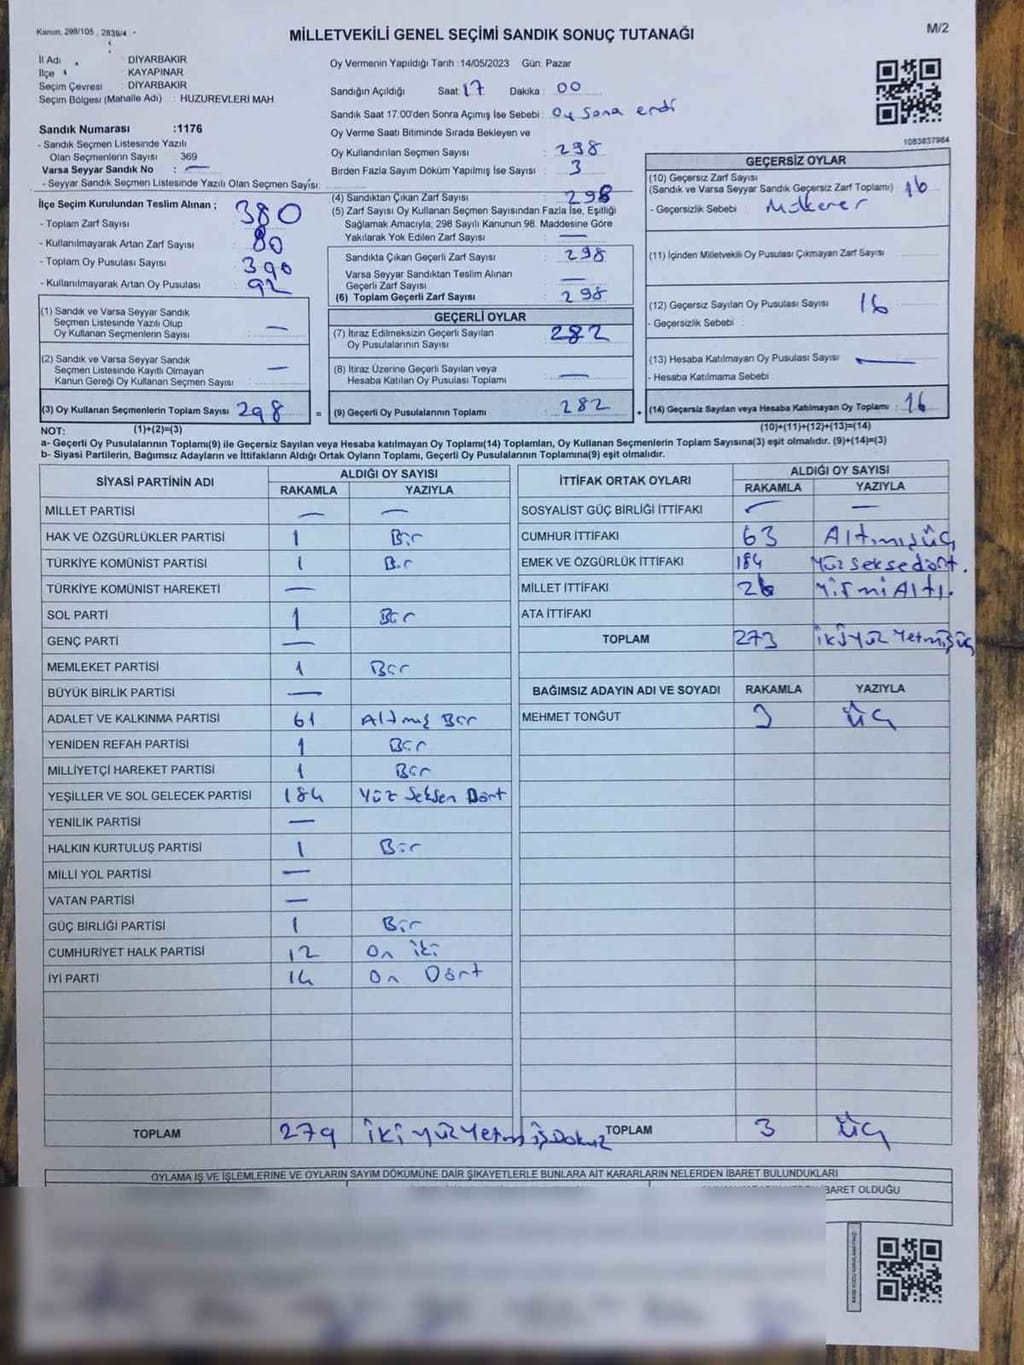 Kanun, 298/105, 2839/4
M/2
MİLLETVEKİLİ GENEL SEÇİMİ SANDIK SONUÇ TUTANAĞI
İl Adı : DİYARBAKIR
İlçe : KAYAPINAR
Seçim Çevresi : DİYARBAKIR
Seçim Bölgesi (Mahalle Adı) : HUZUREVLERİ MAH
Sandık Numarası :1176
- Sandık Seçmen Listesinde Yazılı
Olan Seçmenlerin Sayısı : 369
Varsa Seyyar Sandık No : —
- Seyyar Sandık Seçmen Listesinde Yazılı Olan Seçmen Sayısı:
İlçe Seçim Kurulundan Teslim Alınan ;
- Toplam Zarf Sayısı : 380
- Kullanılmayarak Artan Zarf Sayısı : 80
- Toplam Oy Pusulası Sayısı : 390
- Kullanılmayarak Artan Oy Pusulası : 92
(1) Sandık ve Varsa Seyyar Sandık
Seçmen Listesinde Yazılı Olup
Oy Kullanan Seçmenlerin Sayısı : —
(2) Sandık ve Varsa Seyyar Sandık
Seçmen Listesinde Kayıtlı Olmayan
Kanun Gereği Oy Kullanan Seçmen Sayısı : —
(3) Oy Kullanan Seçmenlerin Toplam Sayısı : 298 =
(1)+(2)=(3)
Oy Vermenin Yapıldığı Tarih :14/05/2023 Gün: Pazar
Sandığın Açıldığı Saat: 17 Dakika : 00
Sandık Saat 17:00'den Sonra Açımış İse Sebebi : Oy Sona erdi
Oy Verme Saati Bitiminde Sırada Bekleyen ve
Oy Kullandırılan Seçmen Sayısı : 298
Birden Fazla Sayım Döküm Yapılmış İse Sayısı : 3
(4) Sandıktan Çıkan Zarf Sayısı : 298
(5) Zarf Sayısı Oy Kullanan Seçmen Sayısından Fazla İse, Eşitliği
Sağlamak Amacıyla; 298 Sayılı Kanunun 98. Maddesine Göre
Yakılarak Yok Edilen Zarf Sayısı : —
Sandıkta Çıkan Geçerli Zarf Sayısı : 298
Varsa Seyyar Sandıktan Teslim Alınan
Geçerli Zarf Sayısı : —
(6) Toplam Geçerli Zarf Sayısı : 298
GEÇERLİ OYLAR
(7) İtiraz Edilmeksizin Geçerli Sayılan
Oy Pusulalarının Sayısı : 282
(8) İtiraz Üzerine Geçerli Sayılan veya
Hesaba Katılan Oy Pusulası Toplamı : —
(9) Geçerli Oy Pusulalarının Toplamı : 282 +
1083837984
GEÇERSİZ OYLAR
(10) Geçersiz Zarf Sayısı
(Sandık ve Varsa Seyyar Sandık Geçersiz Zarf Toplamı) : 16
- Geçersizlik Sebebi :
(11) İçinden Milletvekili Oy Pusulası Çıkmayan Zarf Sayısı :
(12) Geçersiz Sayılan Oy Pusulası Sayısı : 16
- Geçersizlik Sebebi :
(13) Hesaba Katılmayan Oy Pusulası Sayısı : —
- Hesaba Katılmama Sebebi :
(14) Geçersiz Sayılan veya Hesaba Katılmayan Oy Toplamı : 16
(10)+(11)+(12)+(13)=(14)
NOT:
a- Geçerli Oy Pusulalarının Toplamı(9) ile Geçersiz Sayılan veya Hesaba katılmayan Oy Toplamı(14) Toplamları, Oy Kullanan Seçmenlerin Toplam Sayısına(3) eşit olmalıdır. (9)+(14)=(3)
b- Siyasi Partilerin, Bağımsız Adayların ve İttifakların Aldığı Ortak Oyların Toplamı, Geçerli Oy Pusulalarının Toplamına(9) eşit olmalıdır.
SİYASİ PARTİNİN ADI ALDIĞI OY SAYISI
RAKAMLA YAZIYLA
MİLLET PARTİSİ — —
HAK VE ÖZGÜRLÜKLER PARTİSİ 1 Bir
TÜRKİYE KOMÜNİST PARTİSİ 1 Bir
TÜRKİYE KOMÜNİST HAREKETİ —
SOL PARTİ 1 Bir
GENÇ PARTİ —
MEMLEKET PARTİSİ 1 Bir
BÜYÜK BİRLİK PARTİSİ —
ADALET VE KALKINMA PARTİSİ 61 Altmış Bir
YENİDEN REFAH PARTİSİ 1 Bir
MİLLİYETÇİ HAREKET PARTİSİ 1 Bir
YEŞİLLER VE SOL GELECEK PARTİSİ 184 Yüz Seksen Dört
YENİLİK PARTİSİ —
HALKIN KURTULUŞ PARTİSİ 1 Bir
MİLLİ YOL PARTİSİ —
VATAN PARTİSİ —
GÜÇ BİRLİĞİ PARTİSİ 1 Bir
CUMHURİYET HALK PARTİSİ 12 On iki
İYİ PARTİ 14 On Dört
TOPLAM 279 iki Yüz Yetmişdokuz
İTTİFAK ORTAK OYLARI ALDIĞI OY SAYISI
RAKAMLA YAZIYLA
SOSYALİST GÜÇ BİRLİĞİ İTTİFAKI — —
CUMHUR İTTİFAKI 63 Altmışüç
EMEK VE ÖZGÜRLÜK İTTİFAKI 184 Yüz seksedört.
MİLLET İTTİFAKI 26 Yirmi Altı.
ATA İTTİFAKI
TOPLAM 273 ikiyüz Yetmişüç
BAĞIMSIZ ADAYIN ADI VE SOYADI RAKAMLA YAZIYLA
MEHMET TONĞUT 3 üç
TOPLAM 3 üç
OYLAMA İŞ VE İŞLEMLERİNE VE OYLARIN SAYIM DÖKÜMÜNE DAİR ŞİKAYETLERLE BUNLARA AİT KARARLARIN NELERDEN İBARET BULUNDUKLARI
BARET OLDUĞU